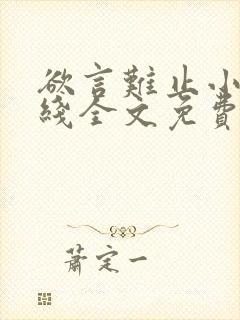 欲言難止小
綫全文免費
蕭定一